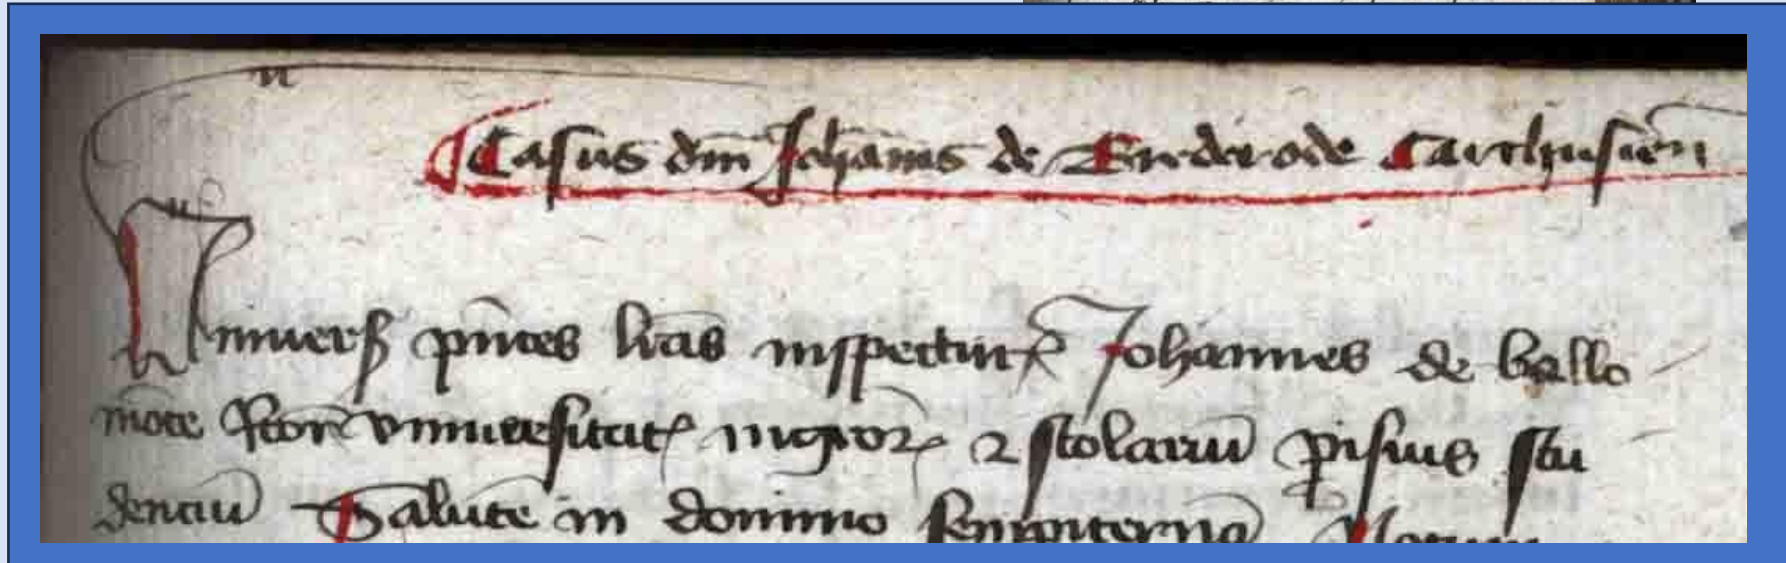 Casus dm̄ Joh̄anis de Enderode Carthusien̄
Univers̄ pn̄tes lr̄as inspectur̄ Johannes de bello
mōte Rector universitat̄ mgr̄oꝝ ⁊ scolarū p̱isius stu
denciū Salutē in domino sempiternā Notum